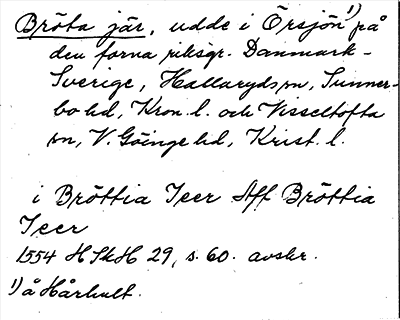 Bröta jär, udde i Örsjön¹) på
den forna riksgr. Danmark-
Sverige, Hallaryds sn, Sunner-
bo hd, Kron. l. och Visseltofta
sn, V. Göinge hd, Krist. l.
i Bröttia Jeer Aff Bröttia
Jeer
1554 HSkH 29, s. 60. avskr.
¹) å Hårhult.